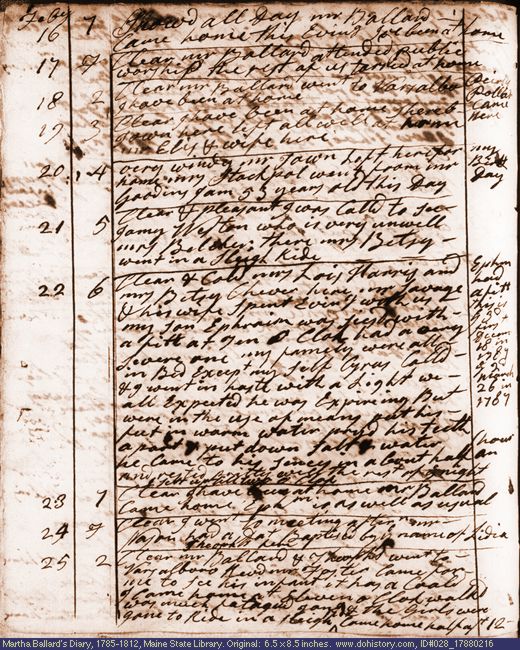 Feby 16 7 Snowd all Day mr Ballard
Came home this Evng I've been at home
17 Clear mr Ballard attended public
worship the rest of us tarried at home
18 2 Clear mr Ballard went to Vassalboro
I have been at home
19 3 Clear I have been at home
Town here left all well at home
mr Ely & wife here
20 4 very windy mr Town kept here for
him mrs Stackpol went from mr
Goodwins I am 53 years old this Day
my Birth Day
21 5 Clear & pleasant I was Calld to see
Jamy Weston who is very unwell
mrs Belcher there mrs Betsy
went in a Sleigh Ride
22 6 Clear & Cold mrs Lois Harris and
mrs Betsy Chever here mr Savage
& his wife Spent Evng with us
my son Ephraim was seisd with
a fitt at Ten O Clok had a very
severe one my family were all
in Bed Except my self Cyrus Calld
& I went in hast with a Light we
all Expected he was Expireing But
were in the use of means put his
feet in warm water prised his teeth
apart & put down Salt & water
he Came to his sences in about half an hour
and rested
Ephm had a fitt
first
Decm 18 in 1787
& 2d
March 26 in 1787
23 7 Clear I have been at home mr Ballard
Came home Ephm is as well as usual
24 Clear I went to meeting after noon mr
had a Daght Baptised by the name of Lidia
25 2 Clear mr Ballard & Theophls went to
Vassalboro
me to see his infant it has a Cold
I Came home at Eleven O Clok
was much fataged & the Girls were
gone to Ride in a Sleigh, Came home half pt 12
Martha Ballard's Diary, 1785-1812, Maine State Library. Original: 6.5 x 8.5 inches. www.dohistory.com, ID#028_17880216